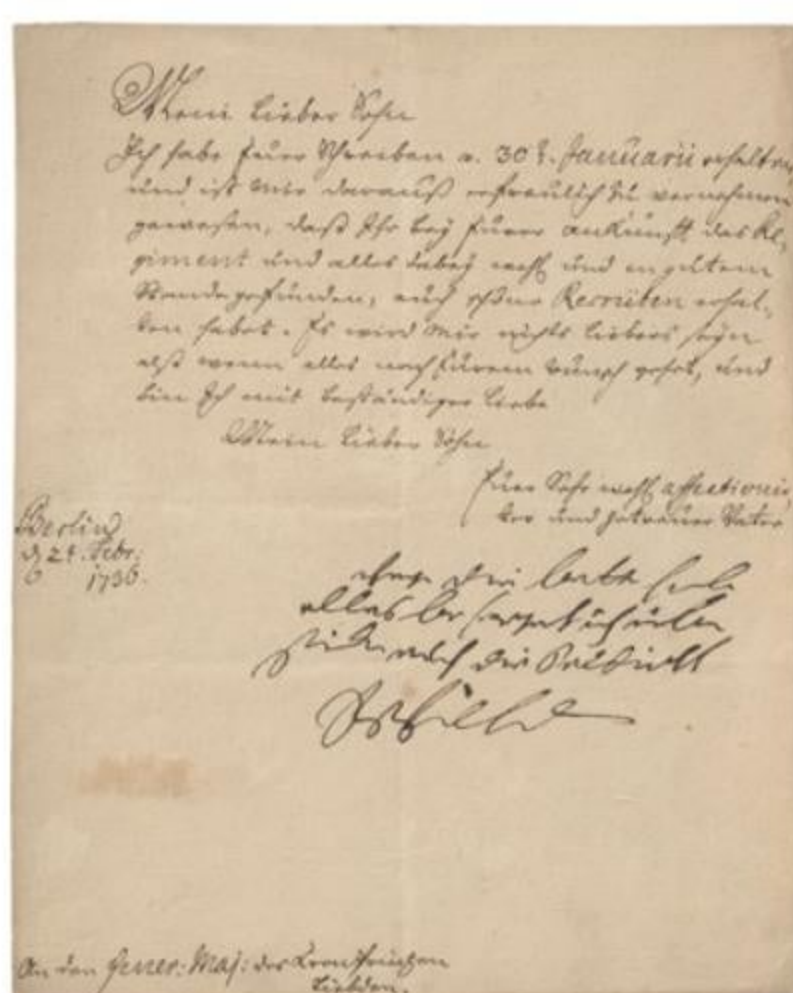 Mein lieber Sohn
Ich habe Euer Schreiben v. 30t. Januarii erhalten,
und ist Mir daraus erfreulich zu vernehmen
gewesen, daß Ihr bey Eurer Ankunfft das Re-
giment und alles dabey wohl und in gutem
Stande gefunden, auch schöne Recruten erhal-
ten habet. Es wird Mir nichts liebers seyn
alß wenn alles nach Eurem Wunsch gehet, und
bin Ich mit beständiger Liebe
Mein lieber Sohn
Euer Sehr wohl affectionir-
ter und getreuer Vater
Berlin
d 2t. Febr:
1736.
alles ich
nach die
An den Gener: Maj: des Cron Printzen
Liebden.